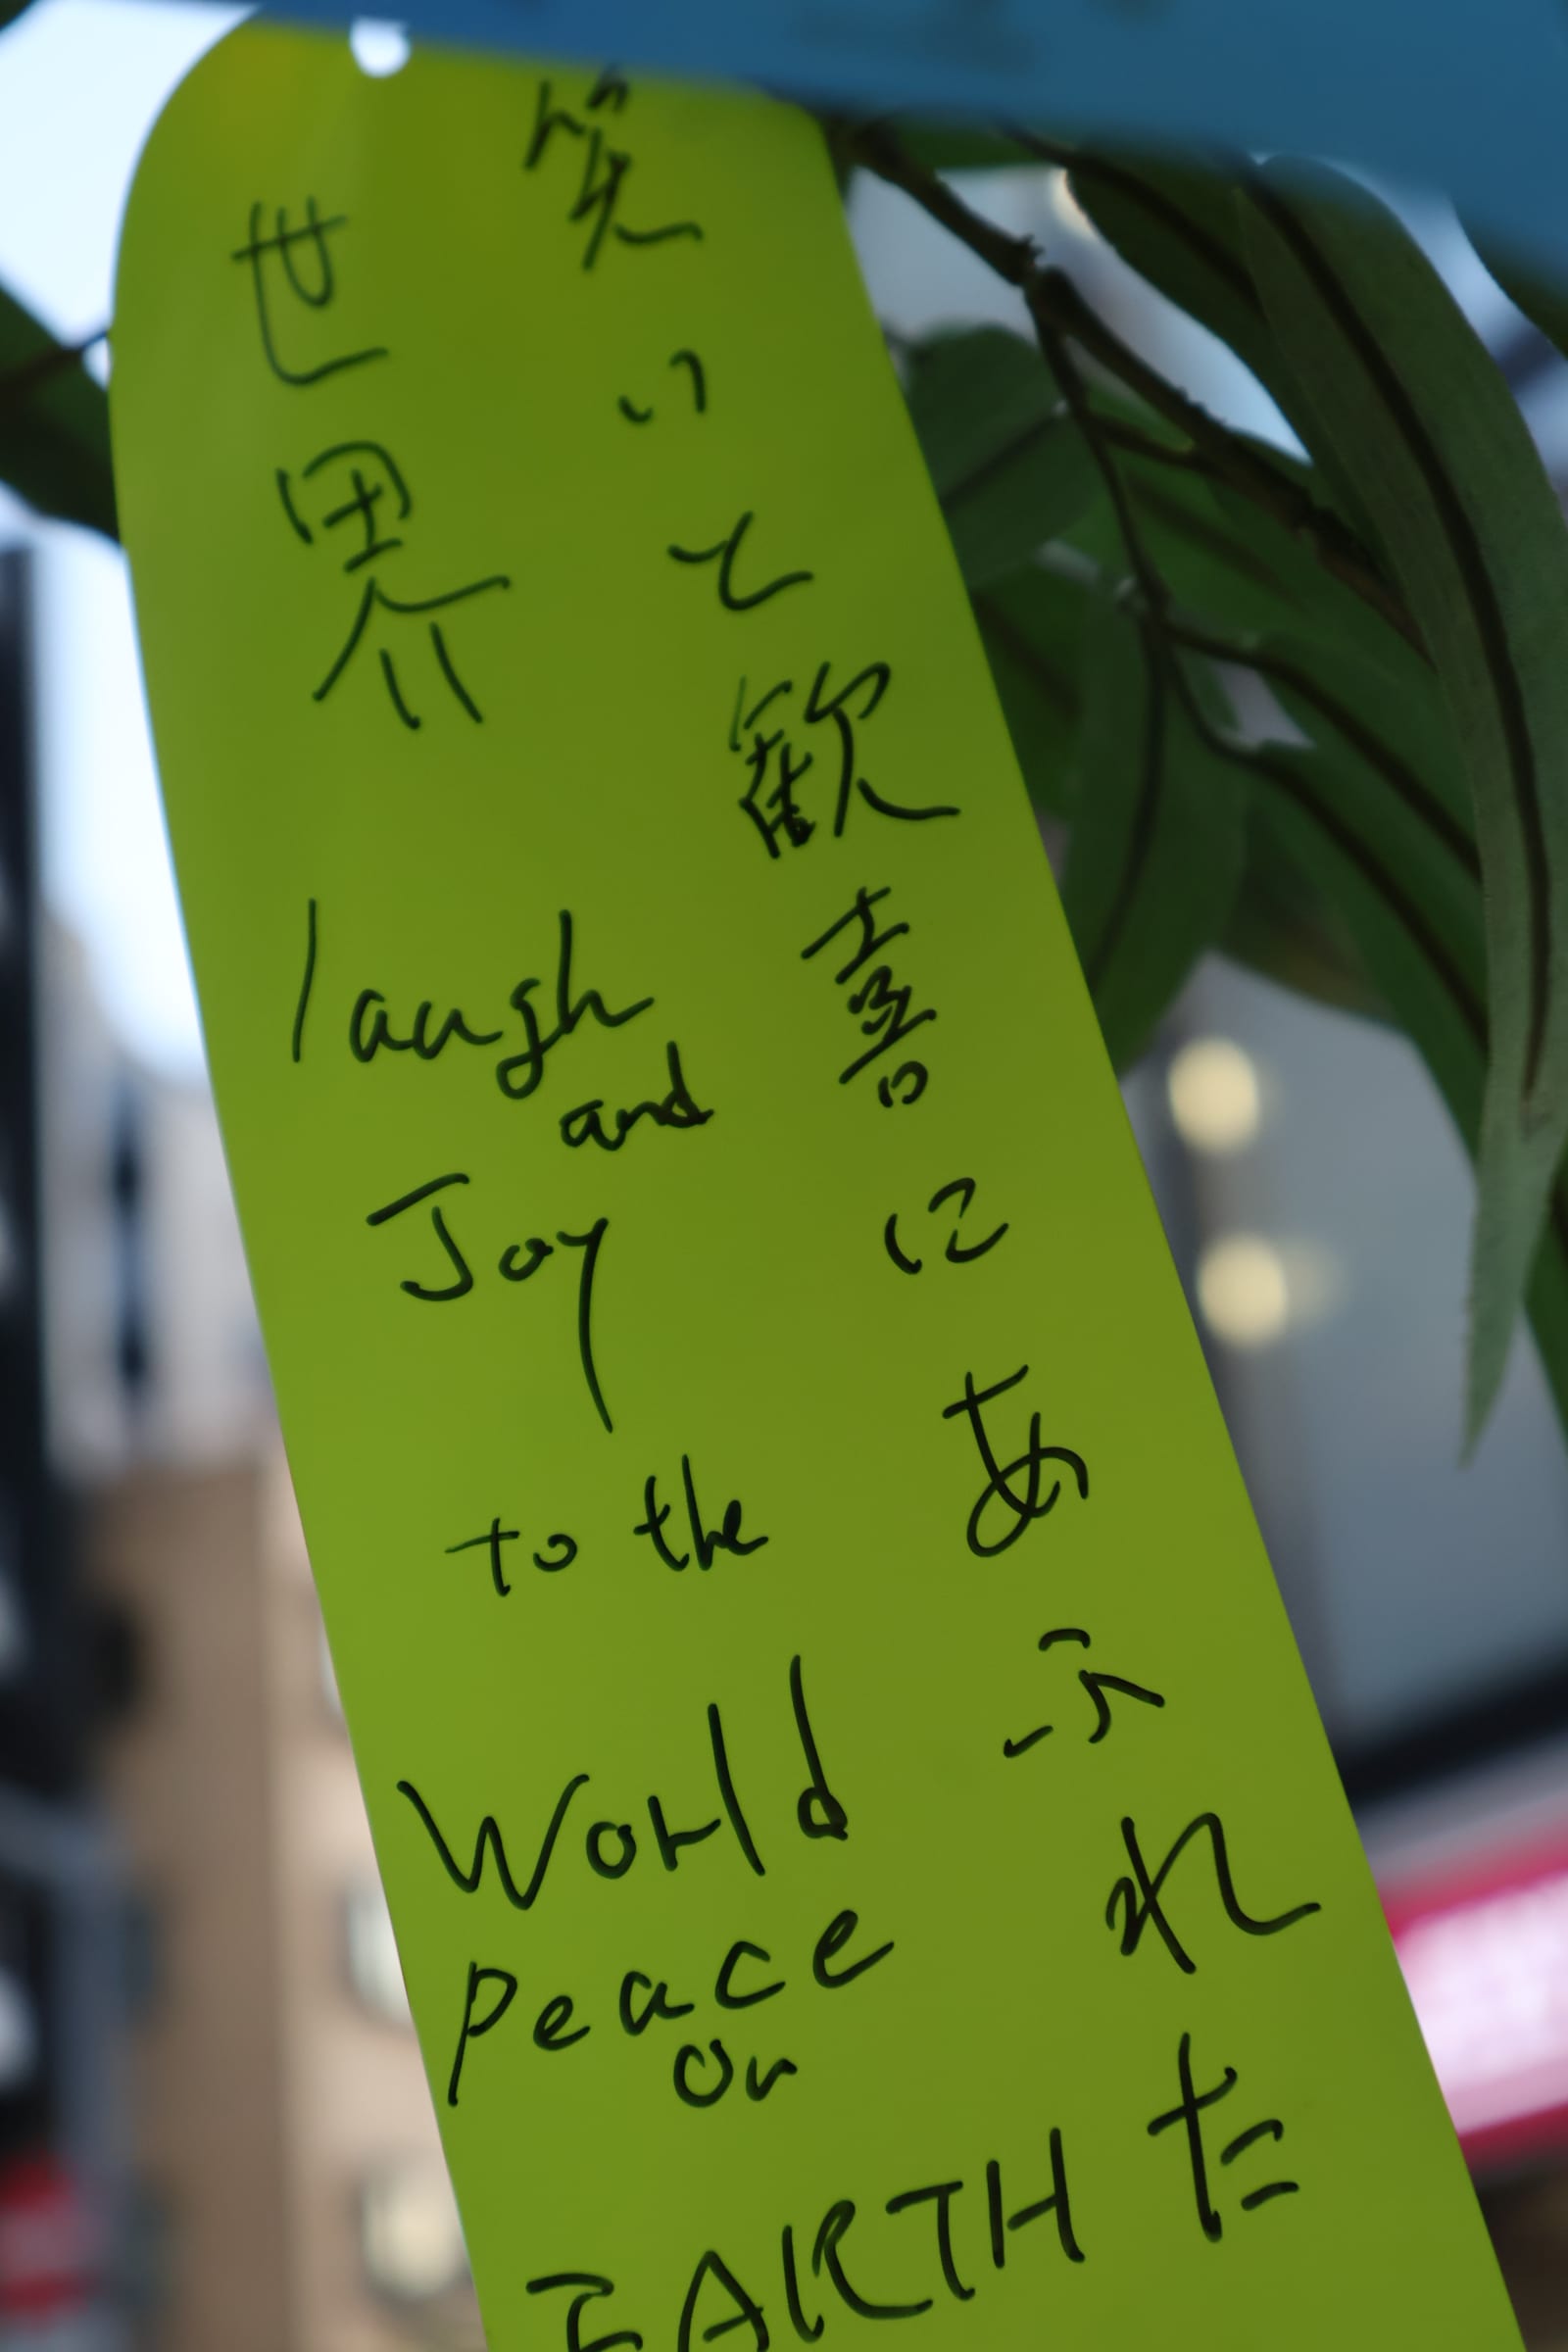 笑いと歓喜にあふれた
世界
laugh
and
Joy
to the
World
Peace
on
EARTH